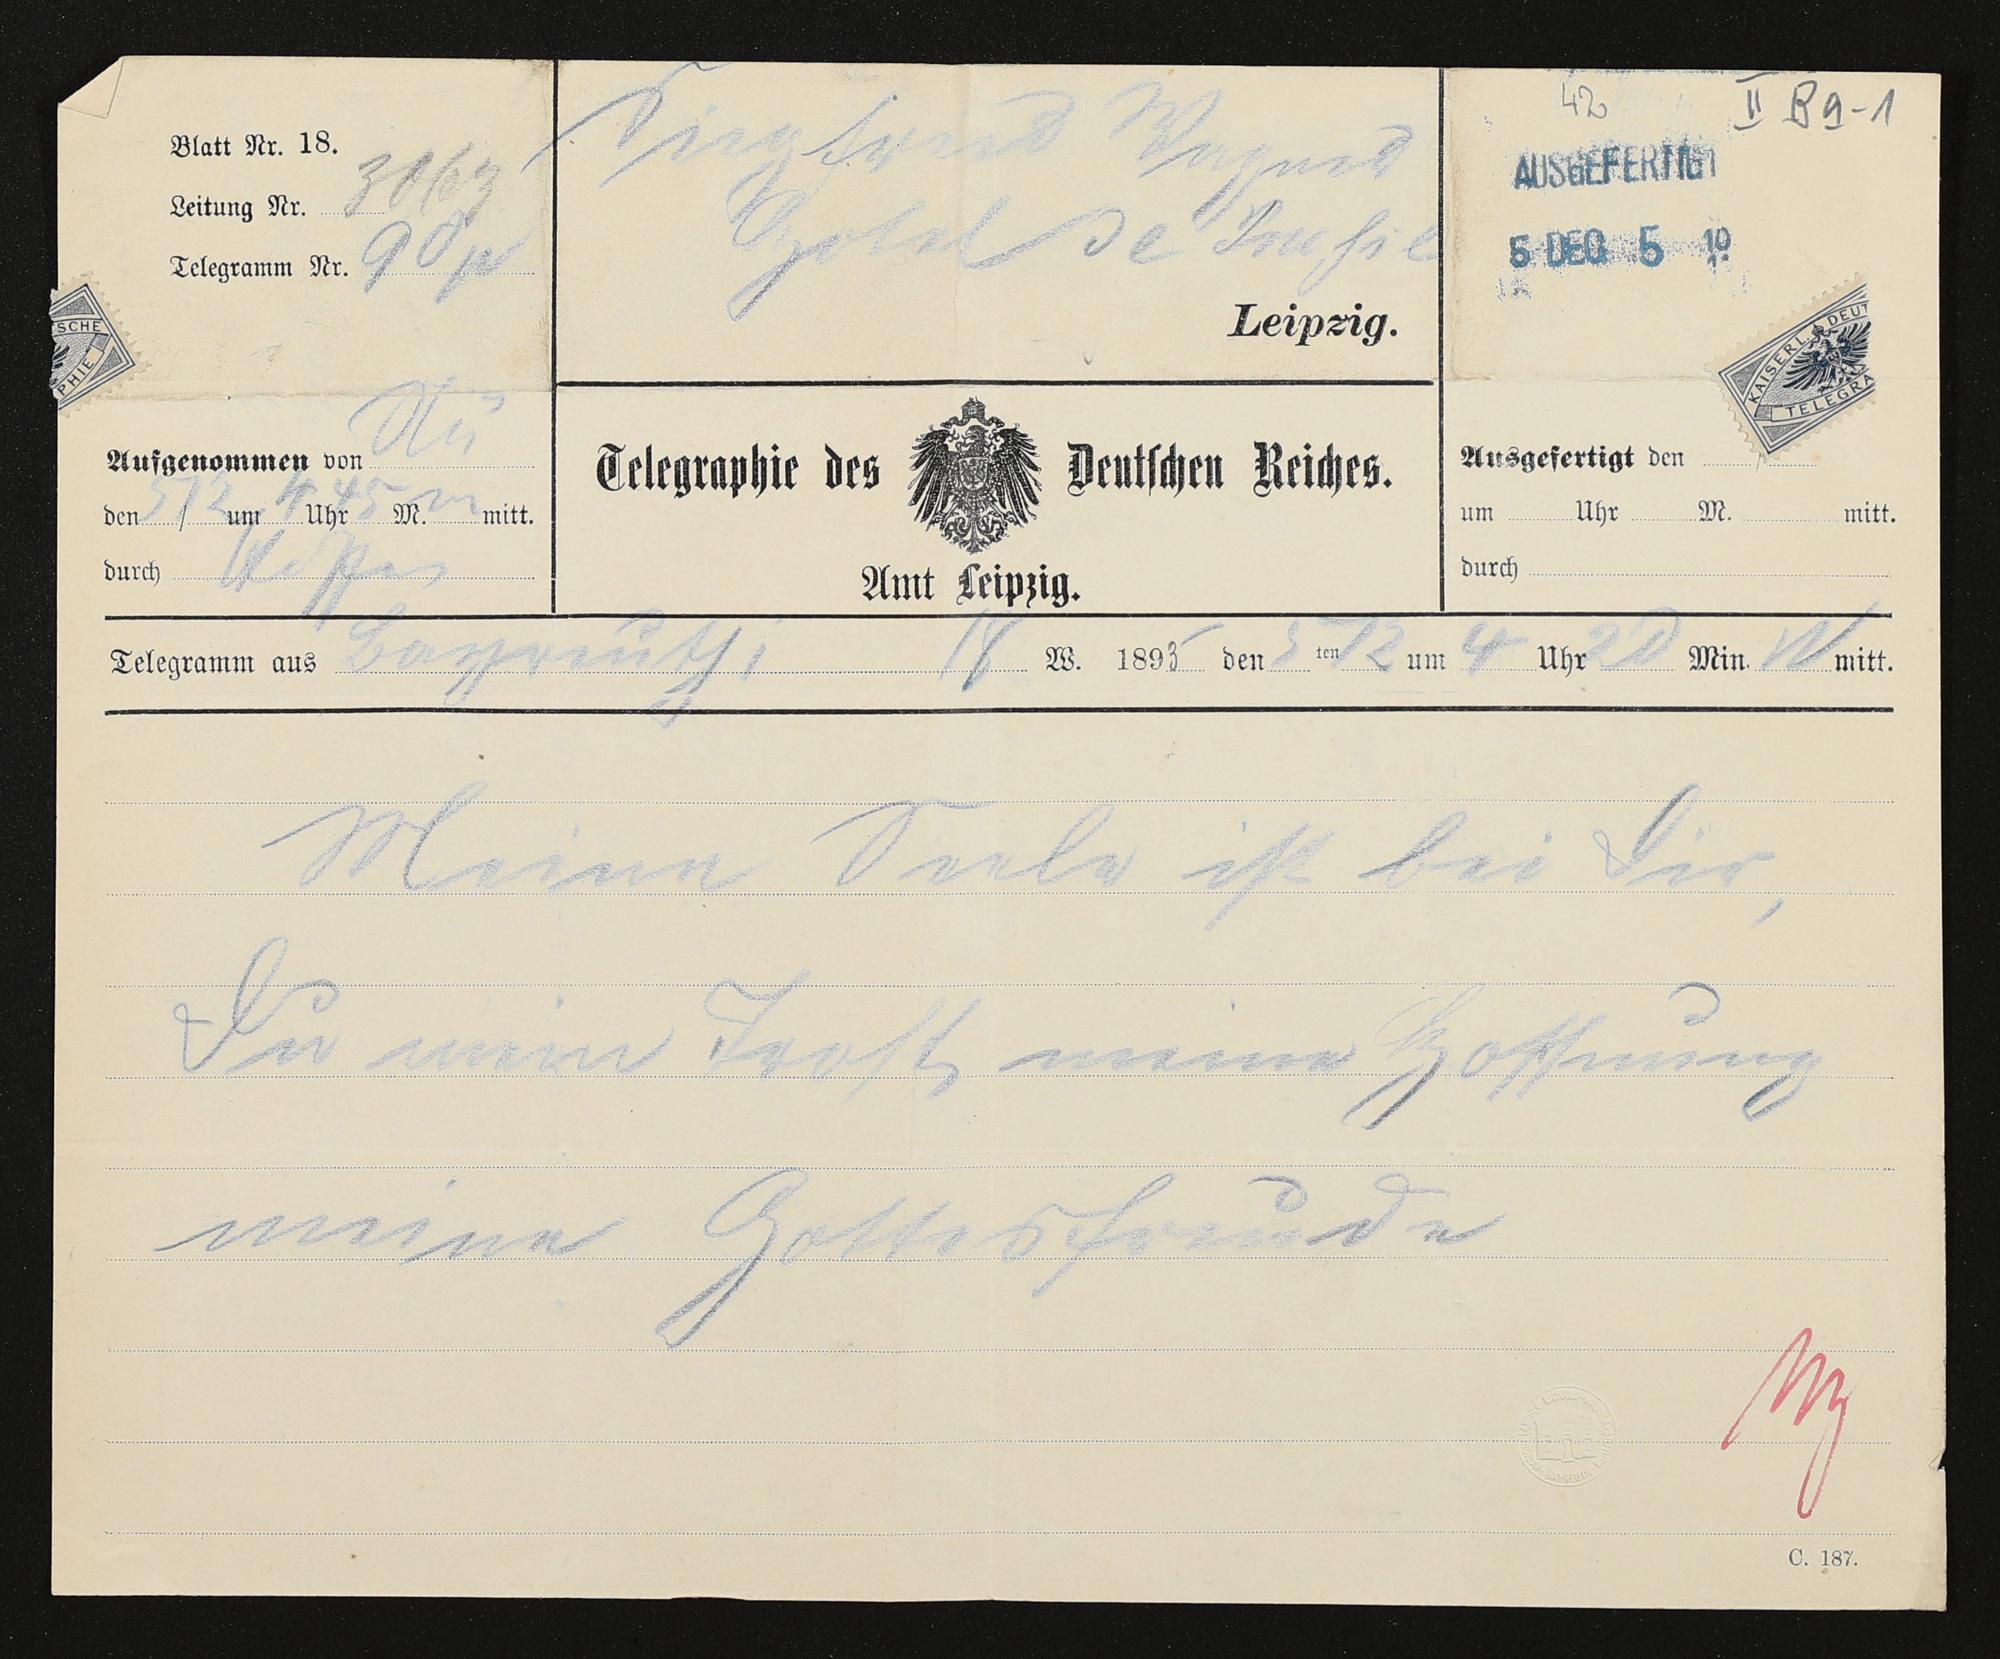 42 II B 9-1
Blatt Nr. 18.
Leitung Nr. 3063
Telegramm Nr. 90
Siegfried Wagner
Hotel de
Leipzig.
AUSGEFERTIGT
5 DEC 5 10
SCHE
PHIE
KAISERL. DEUT
TELEGRA
Aufgenommen von Nü
den 5/12 um 4 Uhr 45 M. mitt.
durch
Telegraphie des Deutschen Reiches.
Amt Leipzig.
Ausgefertigt den /
um Uhr M. mitt.
durch
Telegramm aus Bayreuth 18 W. 1895 den 5 ten 12 um 4 Uhr 20 Min. N mitt.
Meine Seele ist bei Dir,
Du mein Trost, meine Hoffnung
meine Gottesfreude
C. 187.